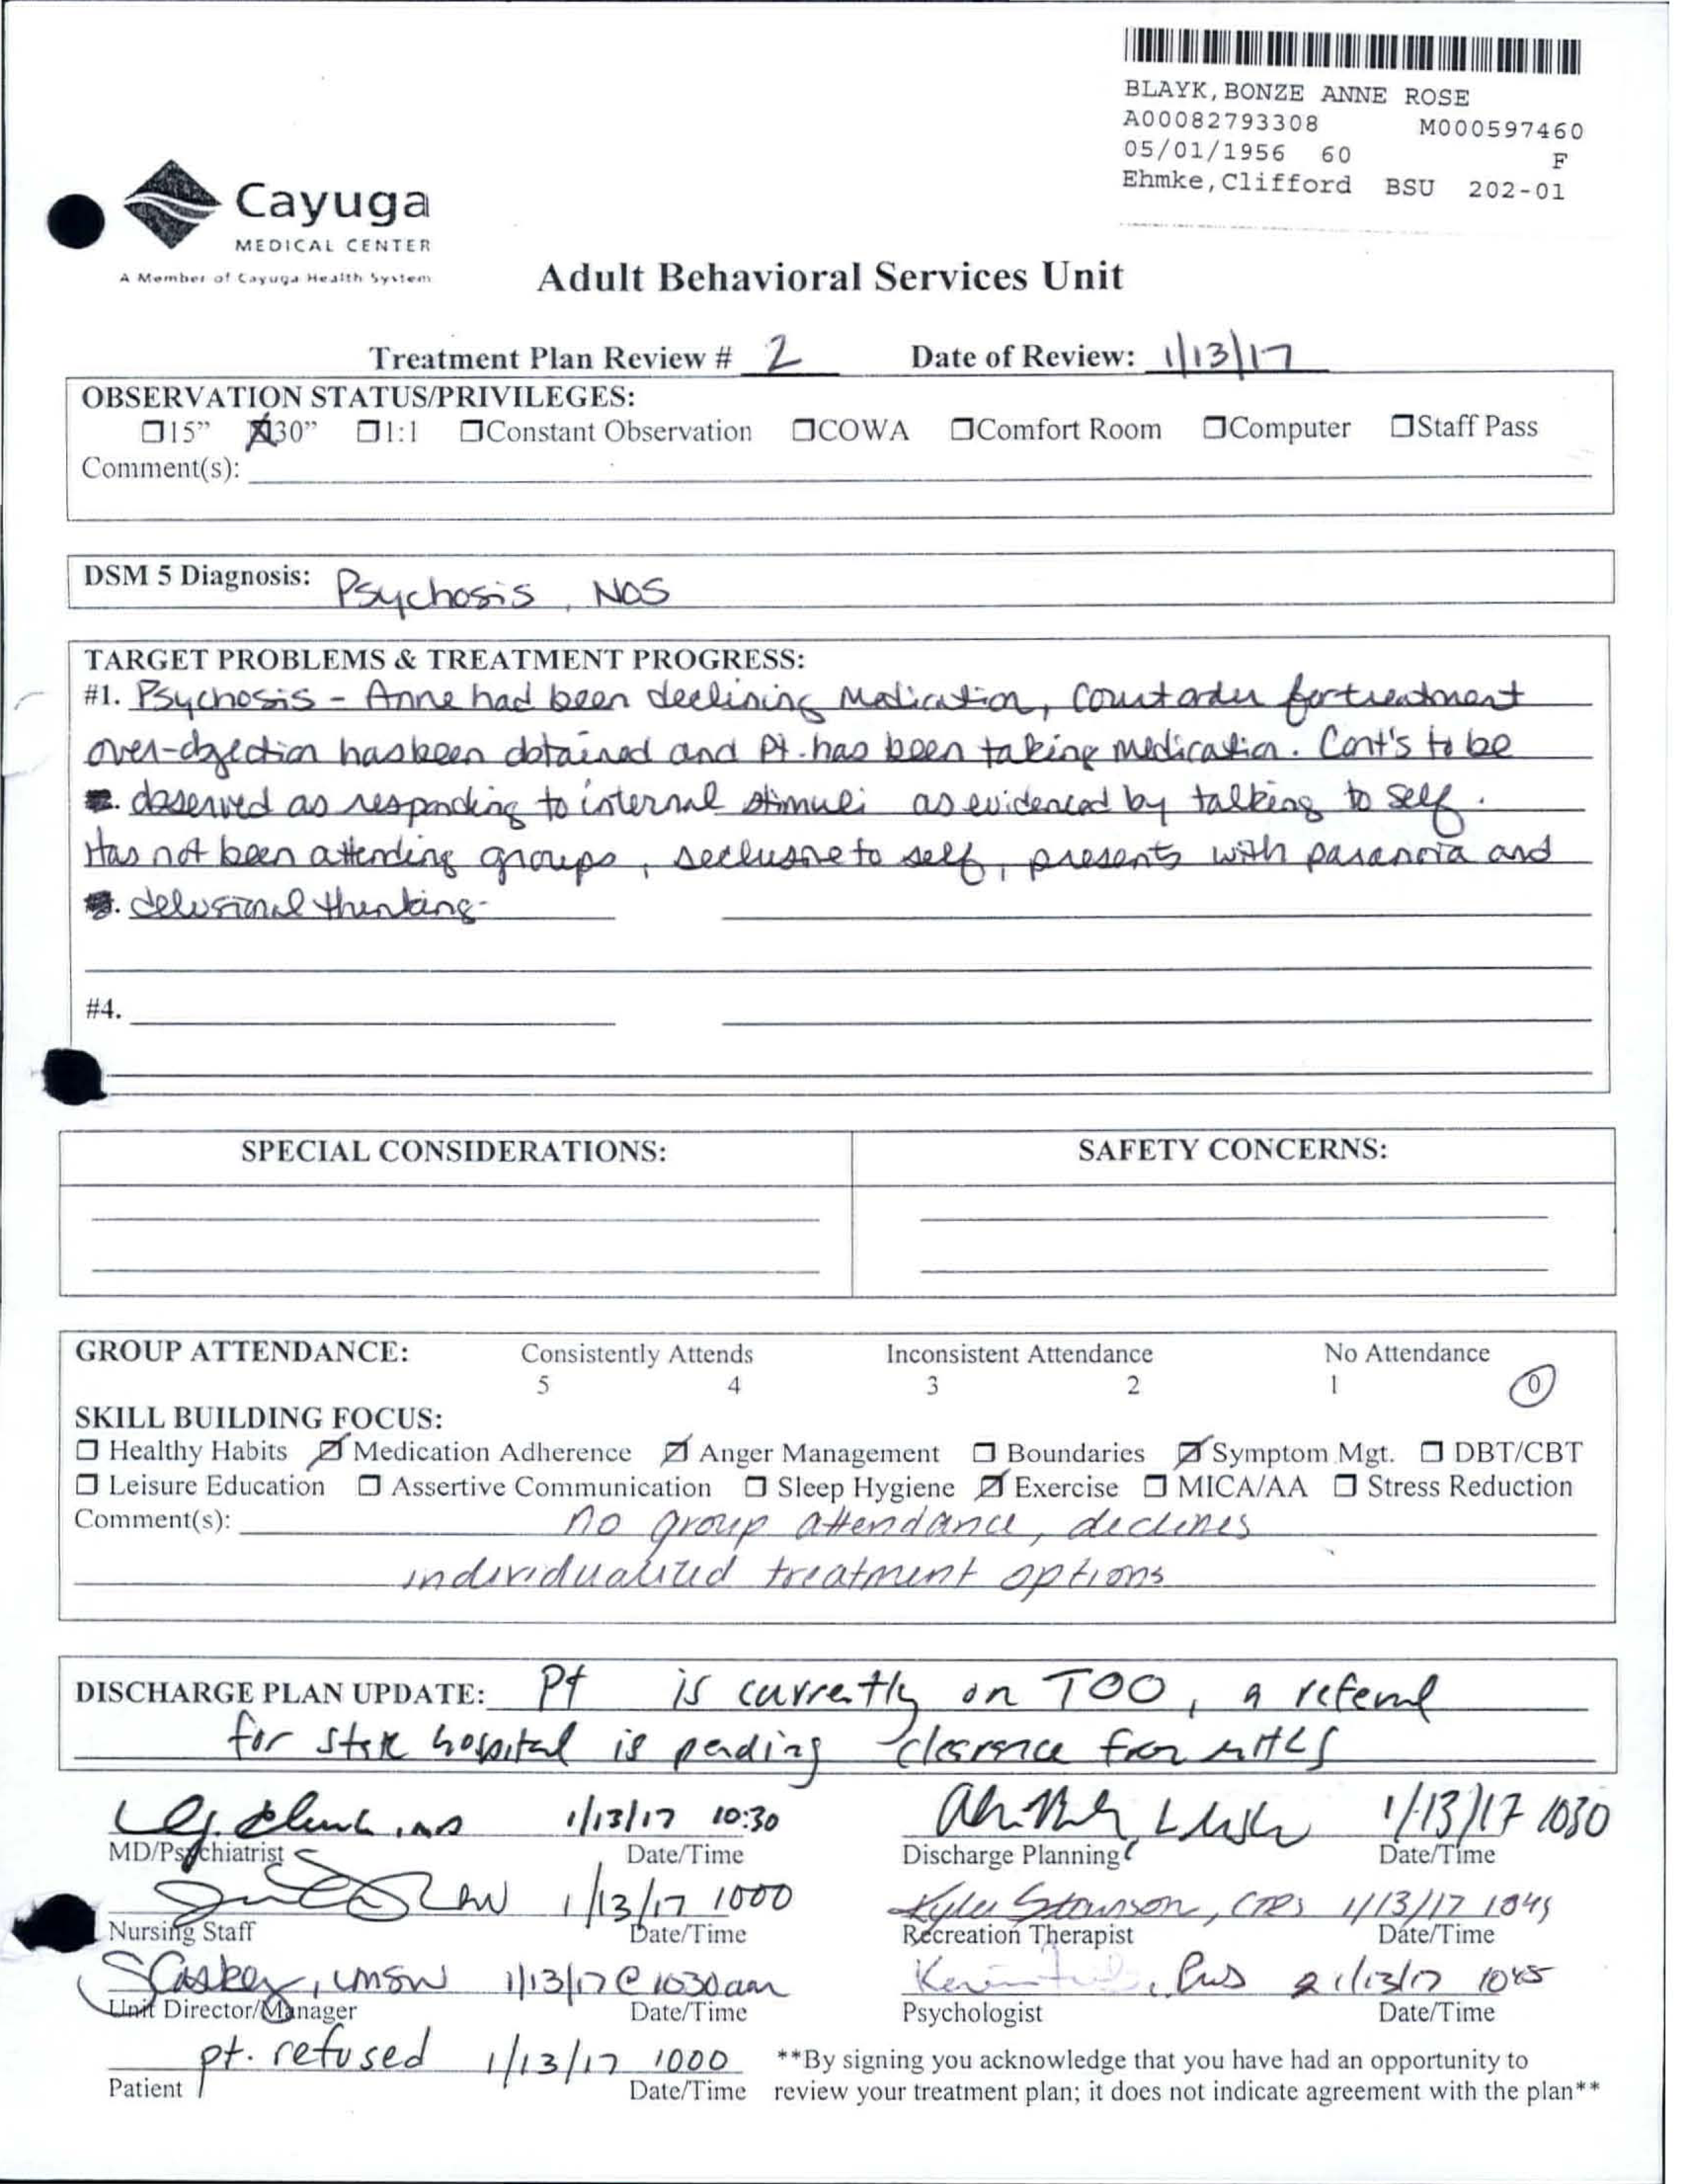 BLAYK, BONZE ANNE ROSE
A00082793308 M000597460
05/01/1956 60 F
Ehmke, Clifford BSU 202-01
Cayuga
MEDICAL CENTER
A Member of Cayuga Health System
Adult Behavioral Services Unit
Treatment Plan Review # 2 Date of Review: 1/13/17
OBSERVATION STATUS/PRIVILEGES:
☐15” ☒30” ☐1:1 ☐Constant Observation ☐COWA ☐Comfort Room ☐Computer ☐Staff Pass
Comment(s):
DSM 5 Diagnosis: Psychosis, NOS
TARGET PROBLEMS & TREATMENT PROGRESS:
#1. Psychosis - Anne had been declining Medication, Court order for treatment
over-objection has been obtained and Pt. has been taking medication. Cont's to be
observed as responding to internal stimuli as evidenced by talking to self.
Has not been attending groups, seclusive to self, presents with paranoia and
delusional thinking.
#4.
SPECIAL CONSIDERATIONS: SAFETY CONCERNS:
GROUP ATTENDANCE: Consistently Attends Inconsistent Attendance No Attendance
5 4 3 2 1 0
SKILL BUILDING FOCUS:
☐ Healthy Habits ☑ Medication Adherence ☑ Anger Management ☐ Boundaries ☑ Symptom Mgt. ☐ DBT/CBT
☐ Leisure Education ☐ Assertive Communication ☐ Sleep Hygiene ☑ Exercise ☐ MICA/AA ☐ Stress Reduction
Comment(s): no group attendance, declines
individualized treatment options
DISCHARGE PLAN UPDATE: Pt is currently on TOO, a referral
for state hospital is pending clearance from MHLS
1/13/17 10:30 1/13/17 1030
MD/Psychiatrist Date/Time Discharge Planning Date/Time
1/13/17 1000 Kyler, CTRS 1/13/17 1045
Nursing Staff Date/Time Recreation Therapist Date/Time
SCaskey, LMSW 1/13/17 @ 1030am Kevin 1/13/17 1045
Unit Director/Manager Date/Time Psychologist Date/Time
pt. refused 1/13/17 1000 **By signing you acknowledge that you have had an opportunity to
Patient Date/Time review your treatment plan; it does not indicate agreement with the plan**